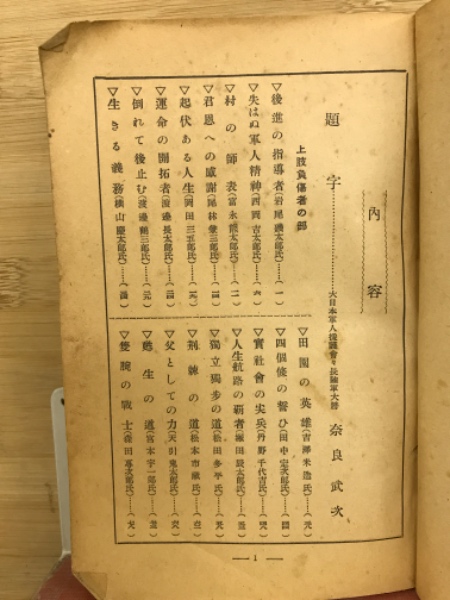 內容
題字……大日本軍人援護會々長陸軍大將 奈良武次
上肢負傷者の部
▽後進の指導者(岩尾磯太郎氏)……(一)
▽失はぬ軍人精神(西岡吉太郎氏)……(六)
▽村の師表(富永龍太郎氏)……(一一)
▽君恩への感謝(尾林衛三郎氏)……(一四)
▽起伏ある人生(岡田三五郎氏)……
▽運命の開拓者(渡邊長太郎氏)……
▽倒れて後止む(渡邊 三郎氏)……
▽生きる義務(横山慶太郎氏)……
▽田園の英雄(吉澤米造氏)……
▽四個條の誓ひ(田中定次郎氏)……
▽實社會の尖兵(丹野千代吉氏)……
▽人生航路の覇者(瀬田 太郎氏)……
▽獨立獨步の道(松田多平氏)……
▽荊棘の道(松本市藏氏)……
▽父としての力(天引鬼太郎氏)……
▽甦生の道(宮本宇一郎氏)……
▽隻腕の戰士(森田專次郎氏)……
— 1 —